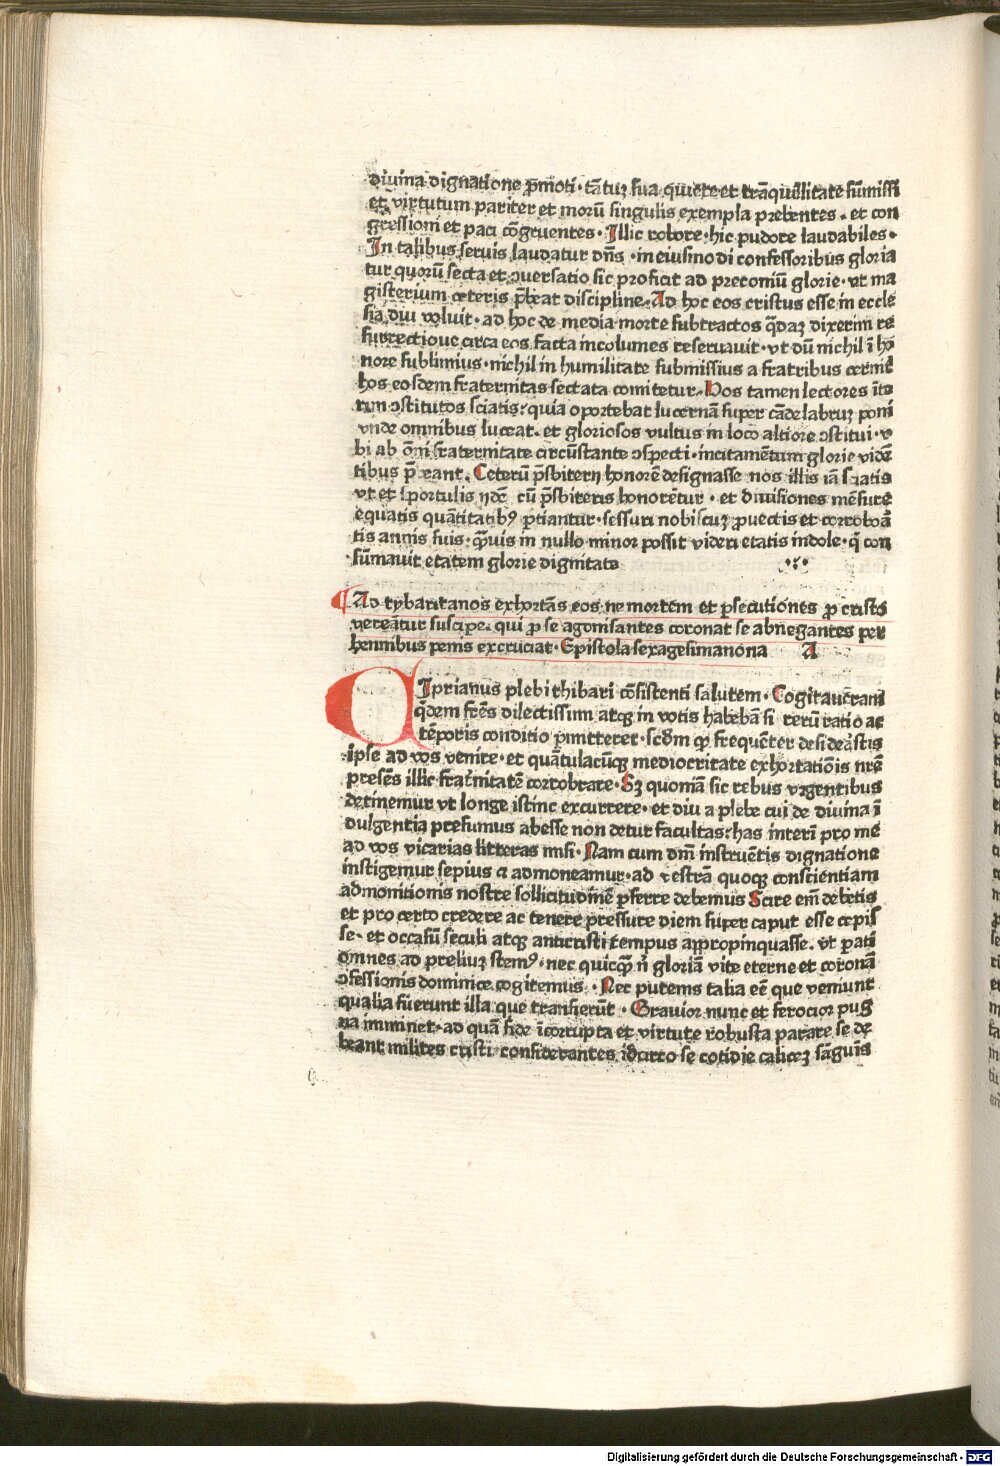 diuina dignatione ꝓmoti · tātuꝫ sua quiete et trāquillitate sūmissi
et virtutum pariter et morū singulis exempla prebentes · et con
gressioni et paci cōgruentes · Illic robore · hic pudore laudabiles ·
In talibus seruis laudatur dn̄s · in eiusmodi confessoribus gloria
tur quorū secta et ↄuersatio sic proficit ad preconiū glorie · vt ma
gisterium ceteris p̄beat discipline · Ad hoc eos cristus esse in eccle
sia diu voluit · ad hoc de media morte subtractos q̄daꝫ dixerim re
surrectione circa eos facta incolumes reseruauit · vt dū nichil ī ho
nore sublimius · nichil in humilitate submissius a fratribus cernit̄
hos eosdem fraternitas sectata comitetur · Hos tamen lectores īte
rim ↄstitutos sciatis : quia oportebat lucernā super cādelabruꝫ poni
vnde omnibus luceat · et gloriosos vultus in loco altiore ↄstitui · v
bi ab om̄i fraternitate circūstante ↄspecti · incitamētum glorie vidē
tibus p̄beant · Ceterū p̄sbiterij honorē designasse nos illis iā sciatis
vt et sportulis ijdē cū p̄sbiteris honorētur · et diuisiones mēsurn̄
equatis quātitatibꝰ ꝑtiantur · sessuri nobiscuꝫ ꝓuectis et corroboa
tis annis suis · q̄uis in nullo minor possit videri etatis indole · q̄ con
sūmauit etatem glorie dignitate
Ad tybaritanos exhortās eos ne mortem et ꝑsecutiōnes ꝓ cristo
vereātur suscipe · qui ꝓ se agonisantes coronat se abnegantes per
hennibus penis excruciat · Epistola sexagesimanona A
CIprianus plebi thibari cōsistenti salutem · Cogitauerāni
q̄dem frēs dilectissimi atqꝫ in votis habebā si rerū ratio ac
tēporis conditio ꝑmitteret · scd̄m ꝙ frequēter desideāstis
ipse ad vos venire · et quātulacūqꝫ mediocritate exhortatiōis nrē
presēs illic frat̄nitatē corrobrare · Sꝫ quoniā sic rebus vrgentibus
detinemur vt longe istinc excurrere · et diu a plebe cui de diuina ī
dulgentia presumus abesse non detur facultas : has interī pro me
ad vos vicarias litteras misi · Nam cum dn̄i instruētis dignatione
instigemur sepius ⁊ admoneamur · ad vestrā quoqꝫ conscientiam
admonitionis nostre sollicitudinē ꝑferre debemus Scire em̄ debetis
et pro certo credere ac tenere pressure diem super caput esse cepis
se · et occasū seculi atqꝫ anticristi tempus appropinquasse · vt pati
omnes ad preliuꝫ stemꝰ · nec quicq̄ n̄ gloriā vite eterne et coronā
ↄfessionis dominice cogitemus · Nec putems talia eē que veniunt
qualia fuerunt illa que transierūt · Grauior nunc et ferocior pug
na imminet · ad quā fide īcorrupta et virtute robusta parare se de
beant milites cristi · considerantes idcirco se cotidie caliceꝫ sāguīs
Digitalisierung gefördert durch die Deutsche Forschungsgemeinschaft - DFG